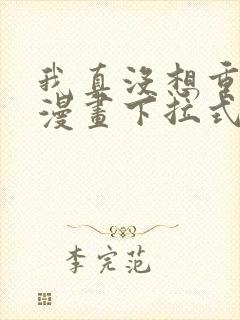 我真没想重
漫畫下拉式
李完范